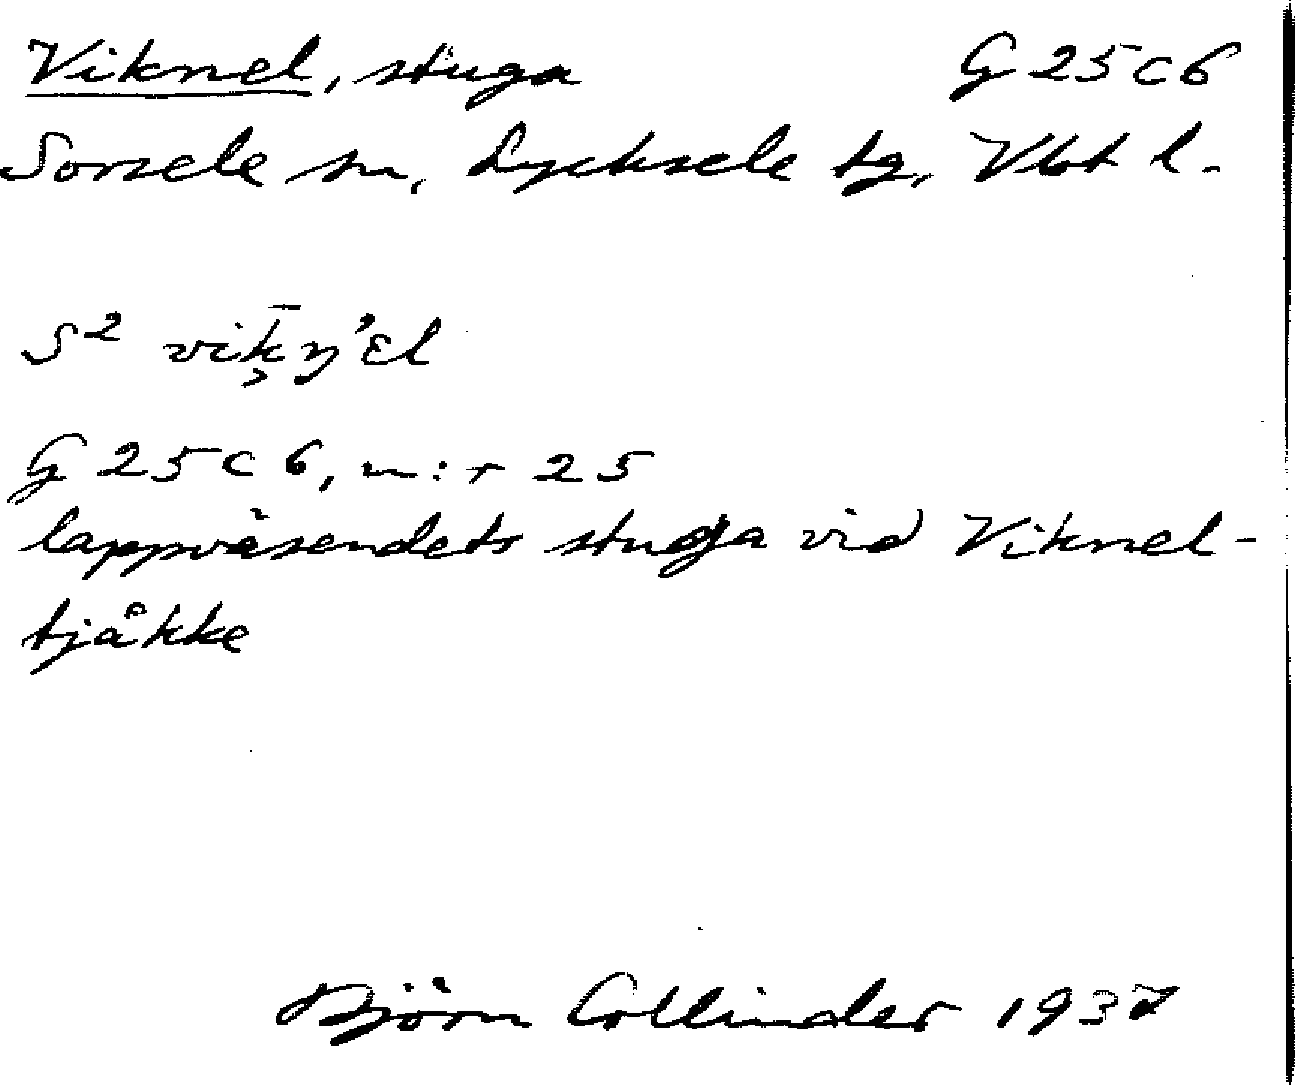 Viknel, stuga G 25 c 6
Sorsele sn, Lycksele tg, Vbt l.
S² vik̄ŋ'εl
G 25 c 6, n:r 25
lappväsendets stuga vid Viknel-
tjåkke
Björn Collinder 1937